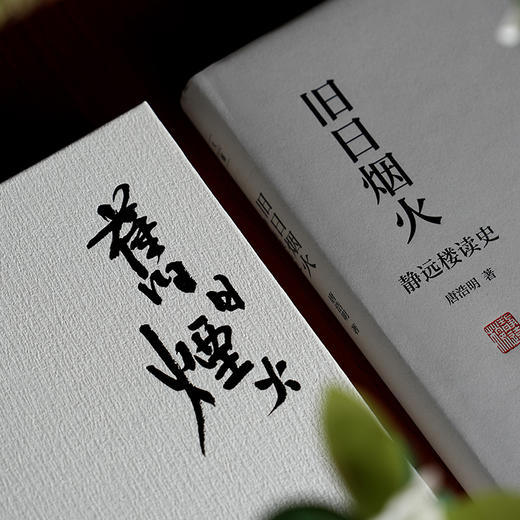 舊日
煙火
旧日烟火
唐浩明 著
旧日烟火
静远楼读史
唐浩明 著